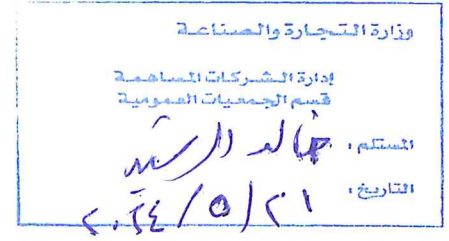 وزارة التجارة والصناعة
إدارة الشركات المساهمة
قسم الجمعيات العمومية
المستلم : خالد الرشيد
التاريخ : ٢١ / ٥ / ٢٠٢٤